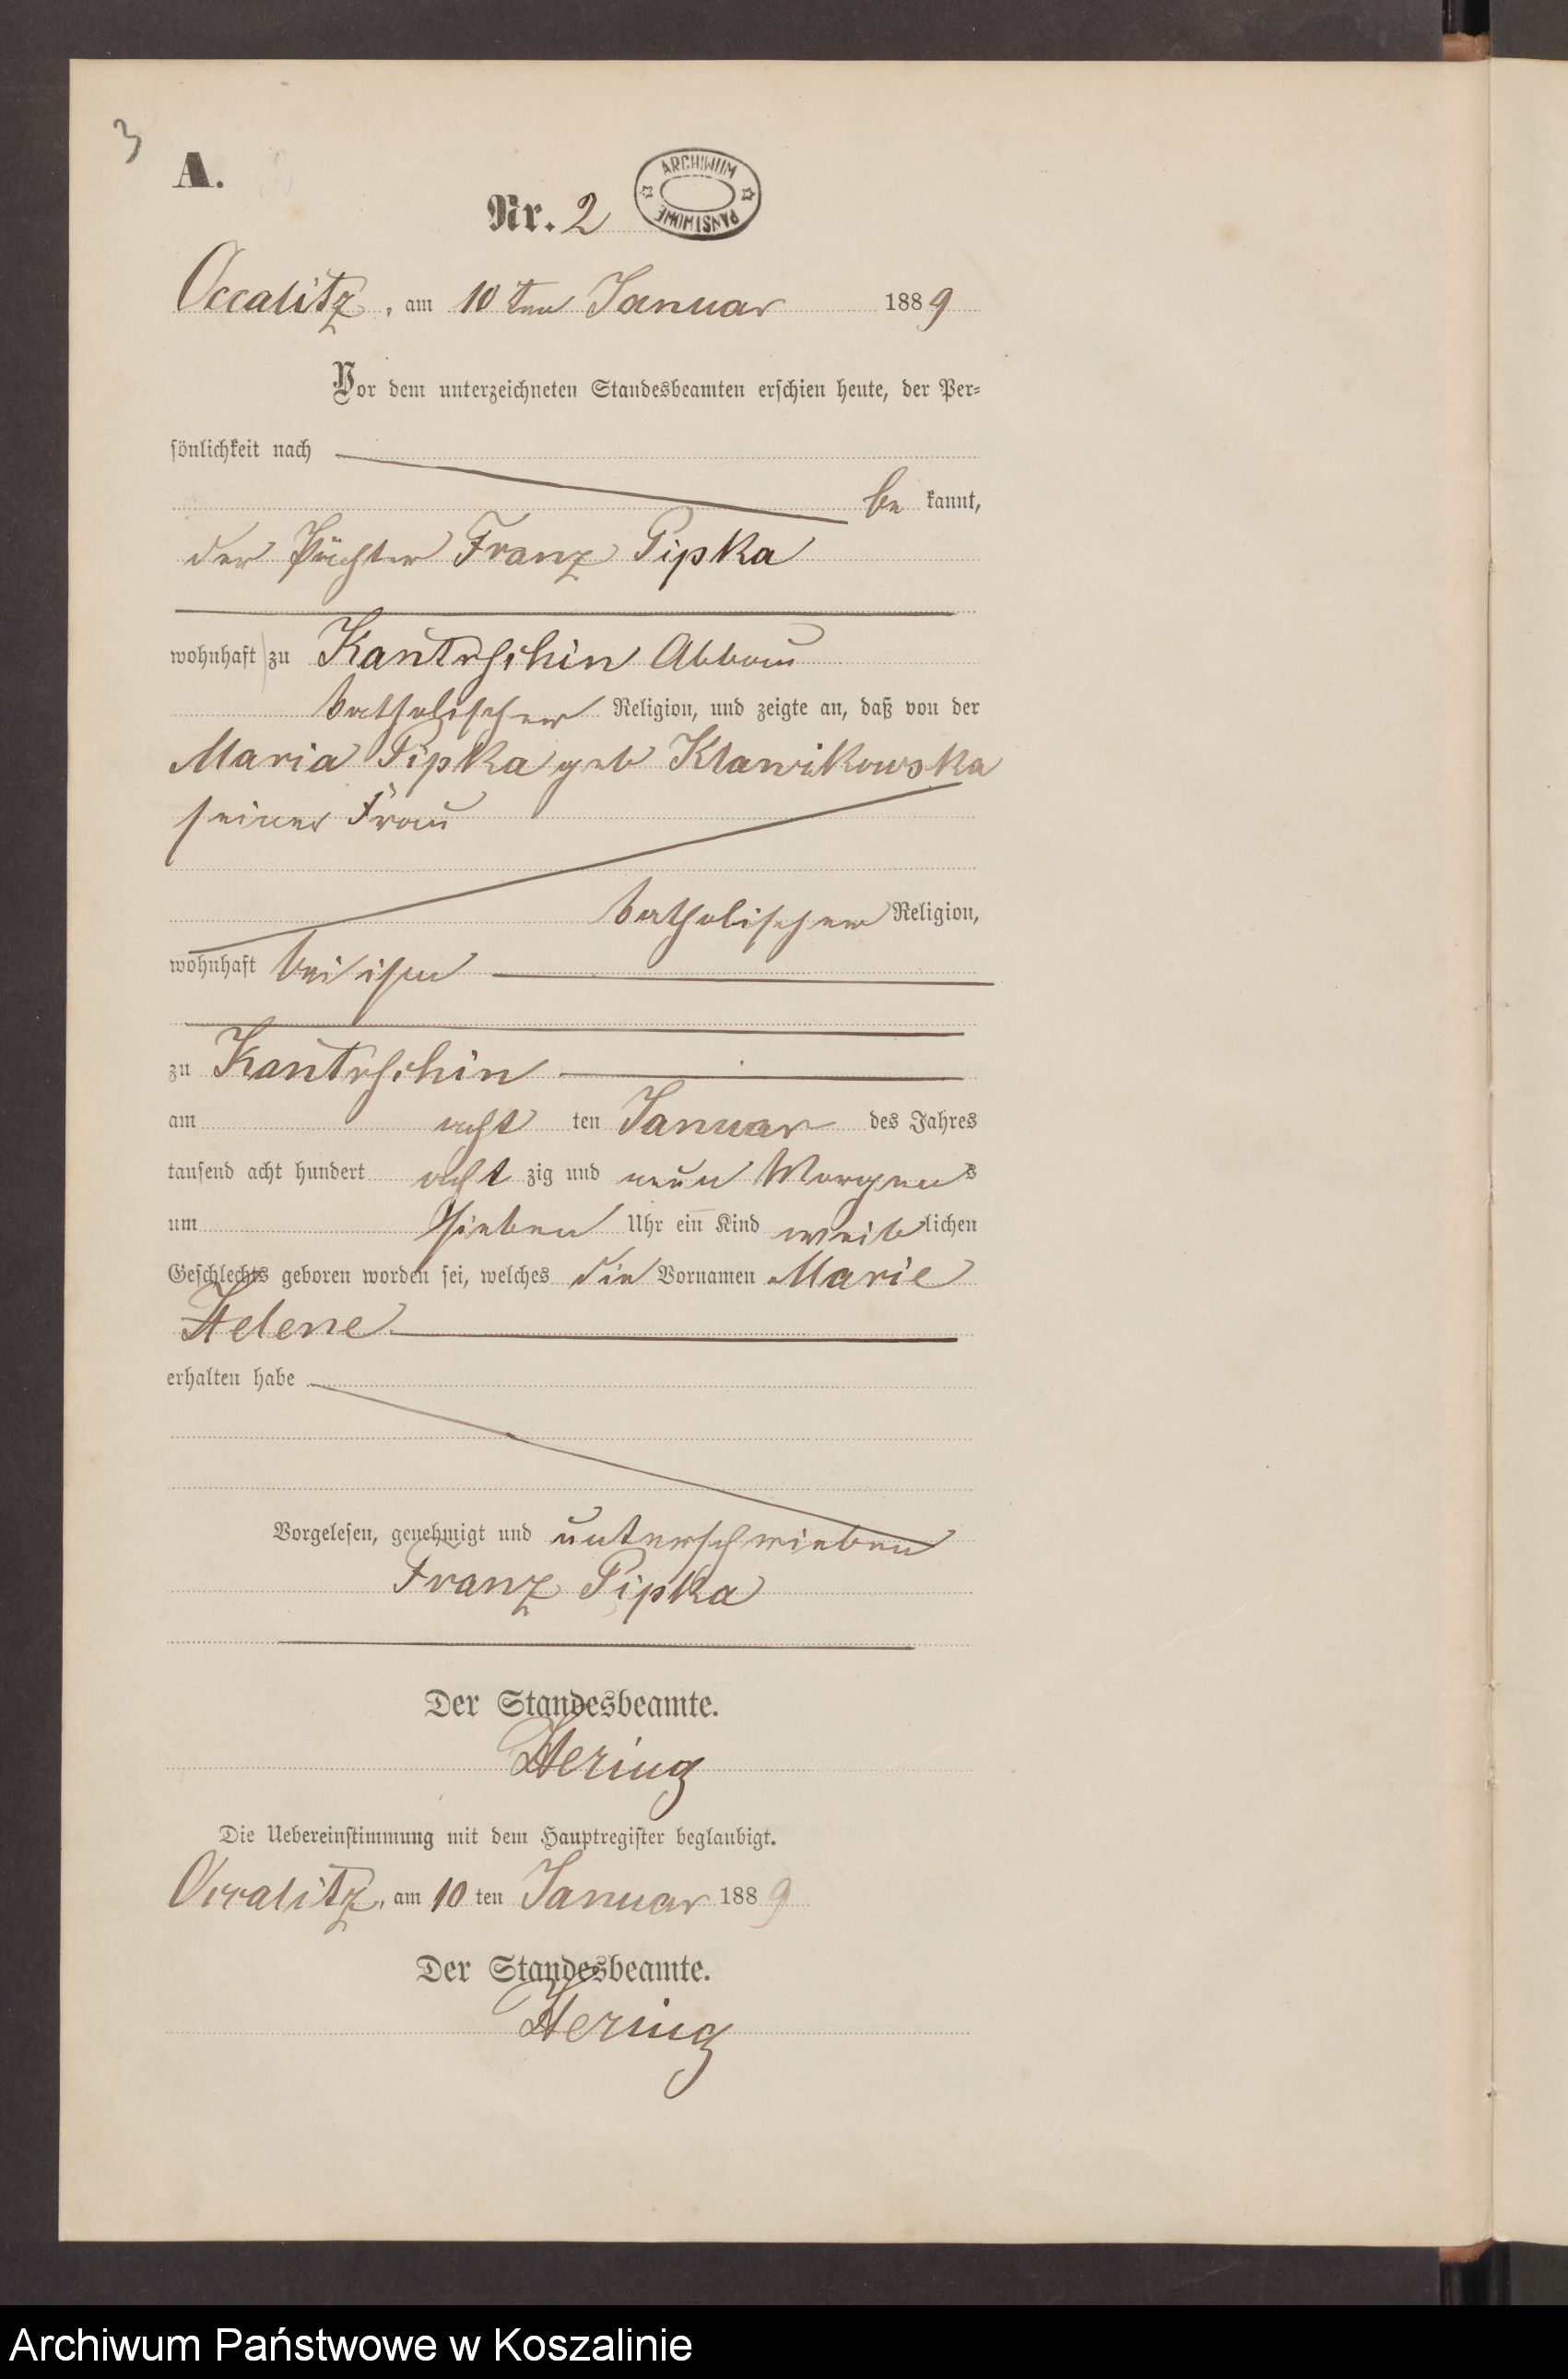 3
A.
Nr. 2
ARCHIWUM PAŃSTWOWE
Occalitz, am 10 ten Januar 1889
Vor dem unterzeichneten Standesbeamten erschien heute, der Per-
sönlichkeit nach
be kannt,
der Pächter Franz Pipka
wohnhaft zu Kantrschin Abbau
katholischer Religion, und zeigte an, daß von der
Maria Pipka geb Klawikowska
seiner Frau
katholischer Religion,
wohnhaft bei ihm
zu Kantrschin
am acht ten Januar des Jahres
tausend acht hundert acht zig und neun Morgens
um sieben Uhr ein Kind weiblichen
Geschlechts geboren worden sei, welches die Vornamen Marie
Helene
erhalten habe
Vorgelesen, genehmigt und unterschrieben
Franz Pipka
Der Standesbeamte.
Hering
Die Uebereinstimmung mit dem Hauptregister beglaubigt.
Occalitz, am 10 ten Januar 1889
Der Standesbeamte.
Hering
Archiwum Państwowe w Koszalinie